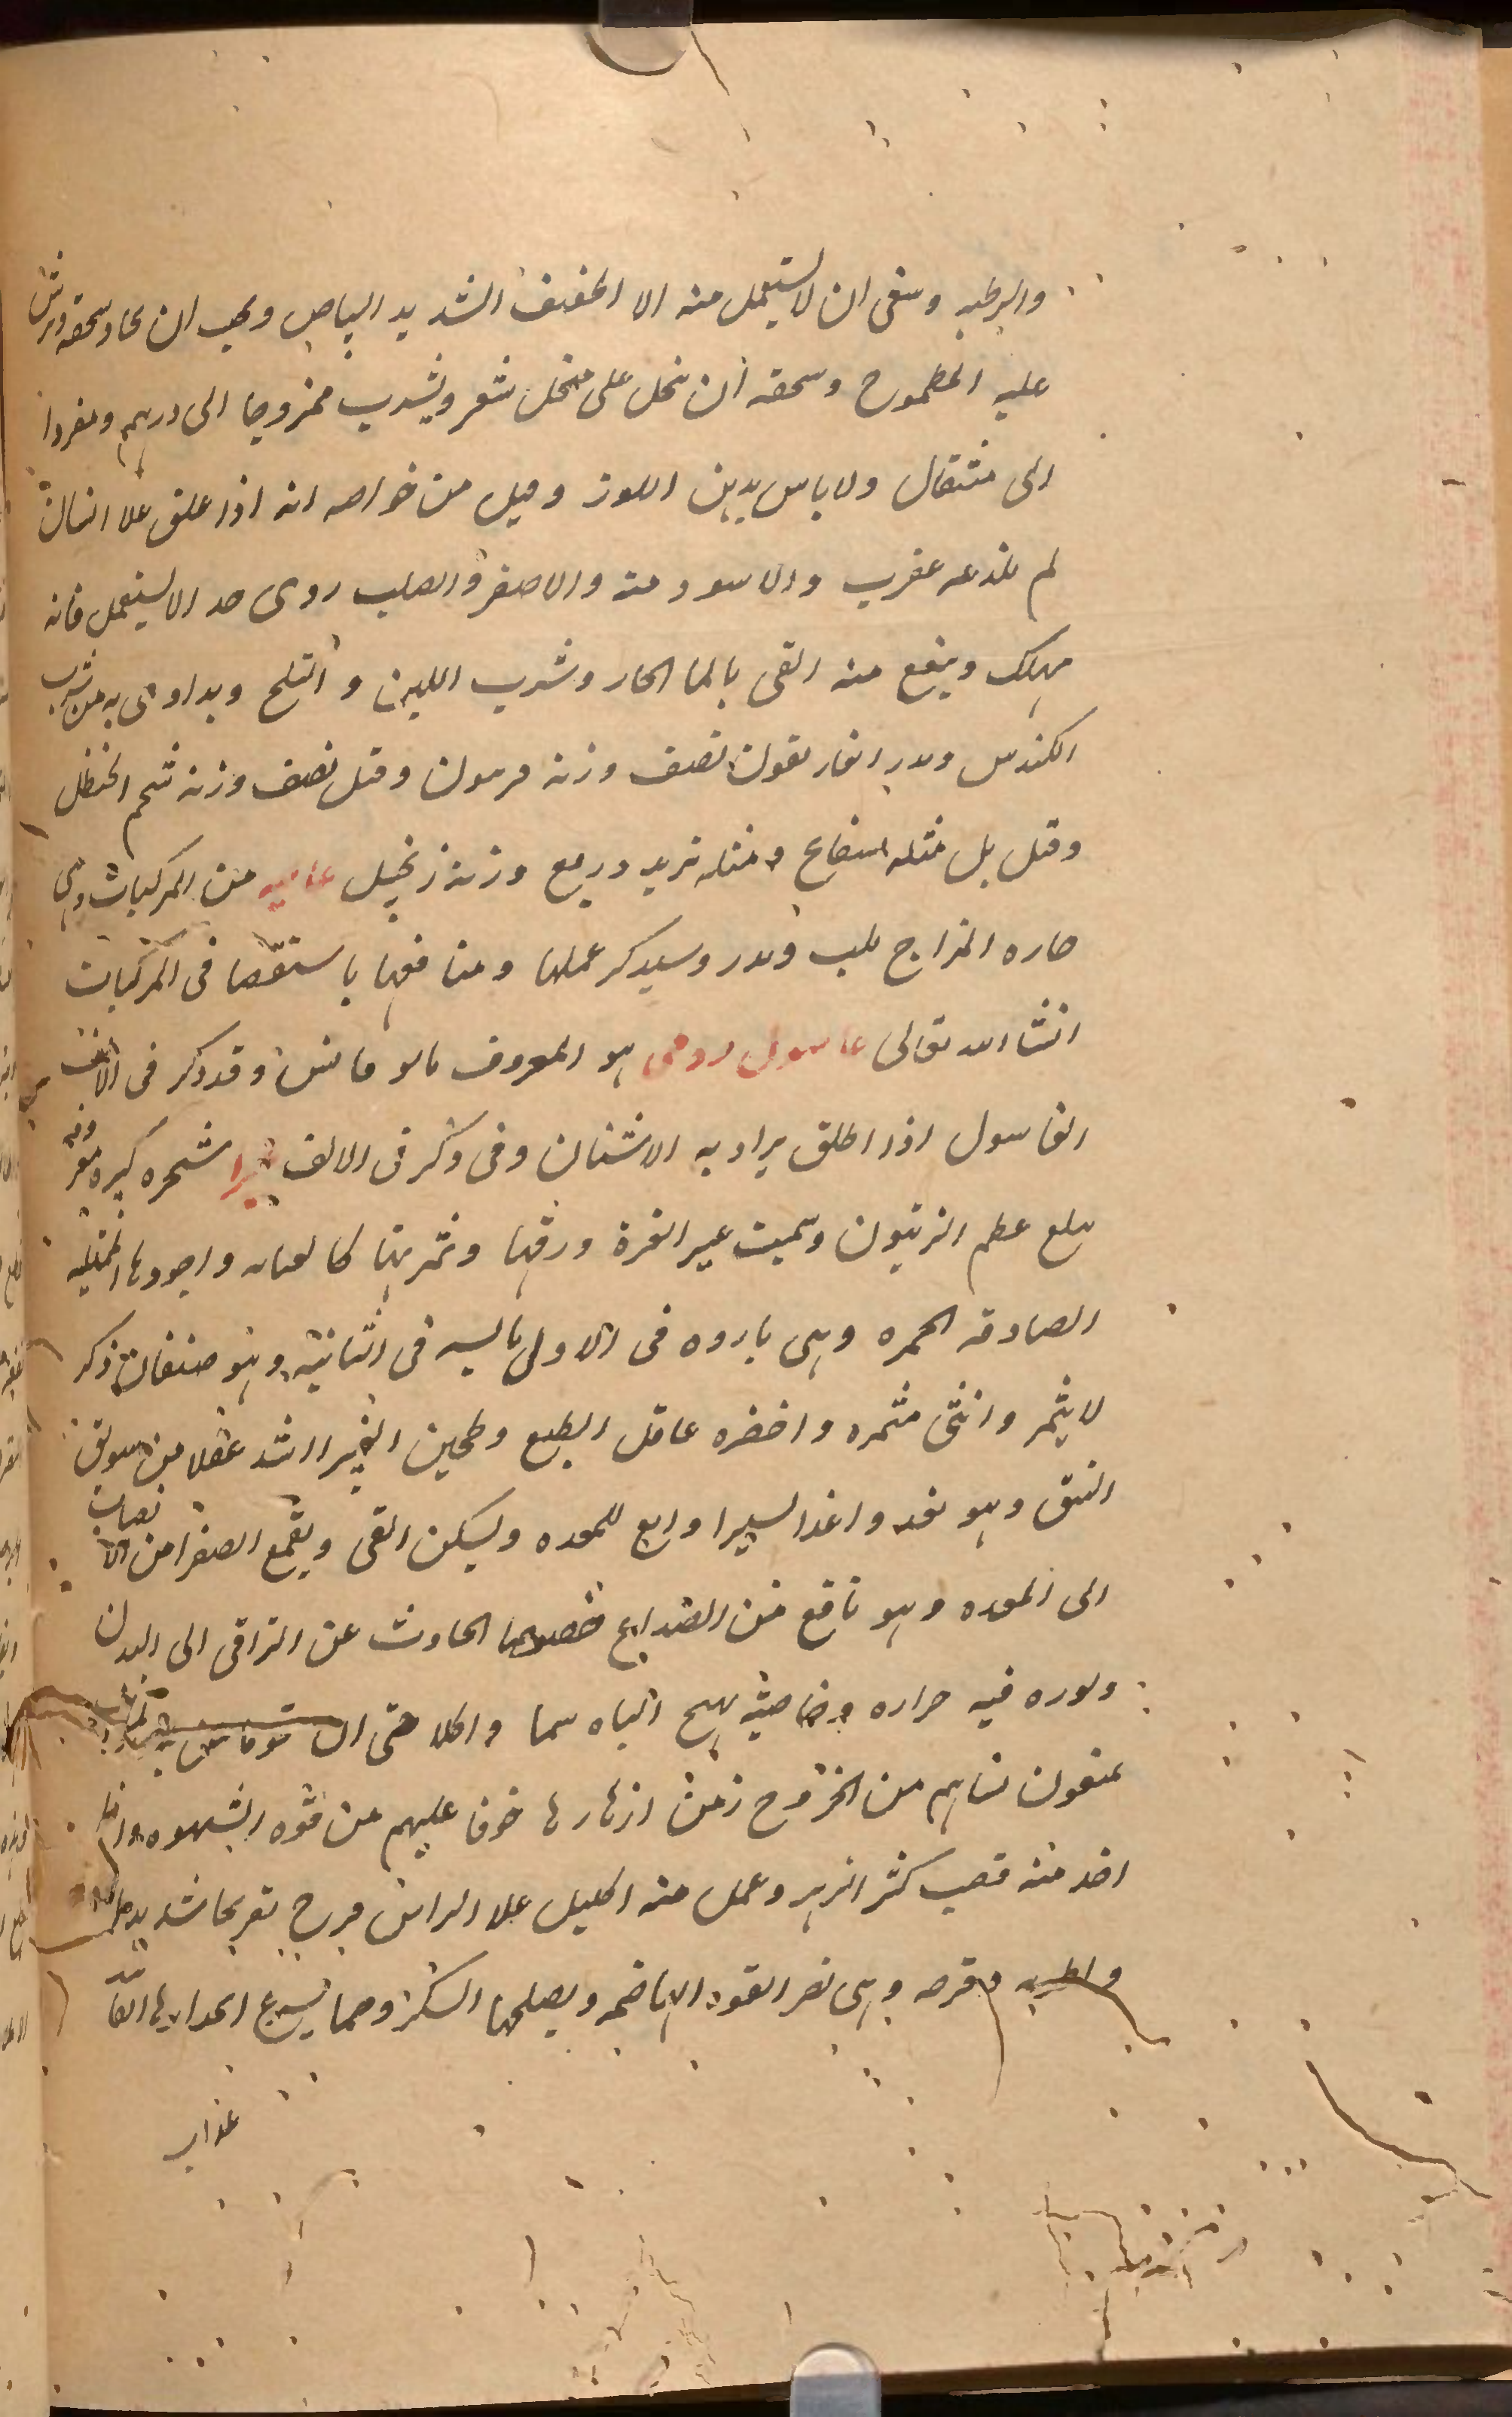 والرطبه وسعى ان لا يستعمل منه الا الخفيف الشديد البياض ويجب ان يجاد سحقه ويرش
عليه المطموح وسحقه ان ينخل على منخل شعر ويشرب ممزوجا الى درهم ومفردا
الى مثقال ولا باس بدهن اللوز وقيل من خواصه انه اذا علق علا انسان
لم تلدغه عقرب والاسود منه والاصفر والصلب ردى جدا لا يستعمل فانه
مهلك وينفع منه القى بالما الحار وشرب اللبن و الثلج ويداوى به من شرب
الكندس وبدل الغاريقون نصف وزنه فربيون وقيل نصف وزنه شحم الحنظل
وقيل بل مثله بسفايج ومثله تربد وربع وزنه زنجبيل غاليه من المركبات وهى
حاره المزاج تلين وتدر وسيذكر عملها ومنافعها باستقصا فى المركبات
انشا الله تعالى غاسول رومى هو المعروف بابو فايس وقد ذكر فى الالف
الغاسول اذا اطلق يراد به الاشنان وقد ذكر فى الالف غبيرا شجره كبيره معروفه
تبلغ عظم الزيتون وسميت غبيرا لغبرة ورقها وثمرتها كالعناب واجودها الممتليه
الصادقه الحمره وهى بارده فى الاولى يابسه فى الثانيه وهو صنفان ذكر
لا يثمر وانثى مثمره واخضره عاقل الطبع وطحين الغبيرا اشد عقلا من سويق
النبق وهو يغذوا غذا يسيرا وابع للمعده ويسكن القى ويقمع الصفرا من الانصاب
الى المعده وهو نافع من الصداع خصوصا الحادث عن التراقى الى البدن
ونوره فيه حراره وخاصيته يهيج الباه شما واكلا حتى ان
يمنعون نساهم من الخروج زمن ازهارها خوفا عليهم من قوه الشهوه واذا
اخذ منه قضيب كثير الزهر وعمل منه اكليل علا الراس فرح تفريحا شديدا
وقرصه وهى تضر القوه الهاضمه ويصلحها السكر ومما يسرع انحدارها الفانيذ
غداب